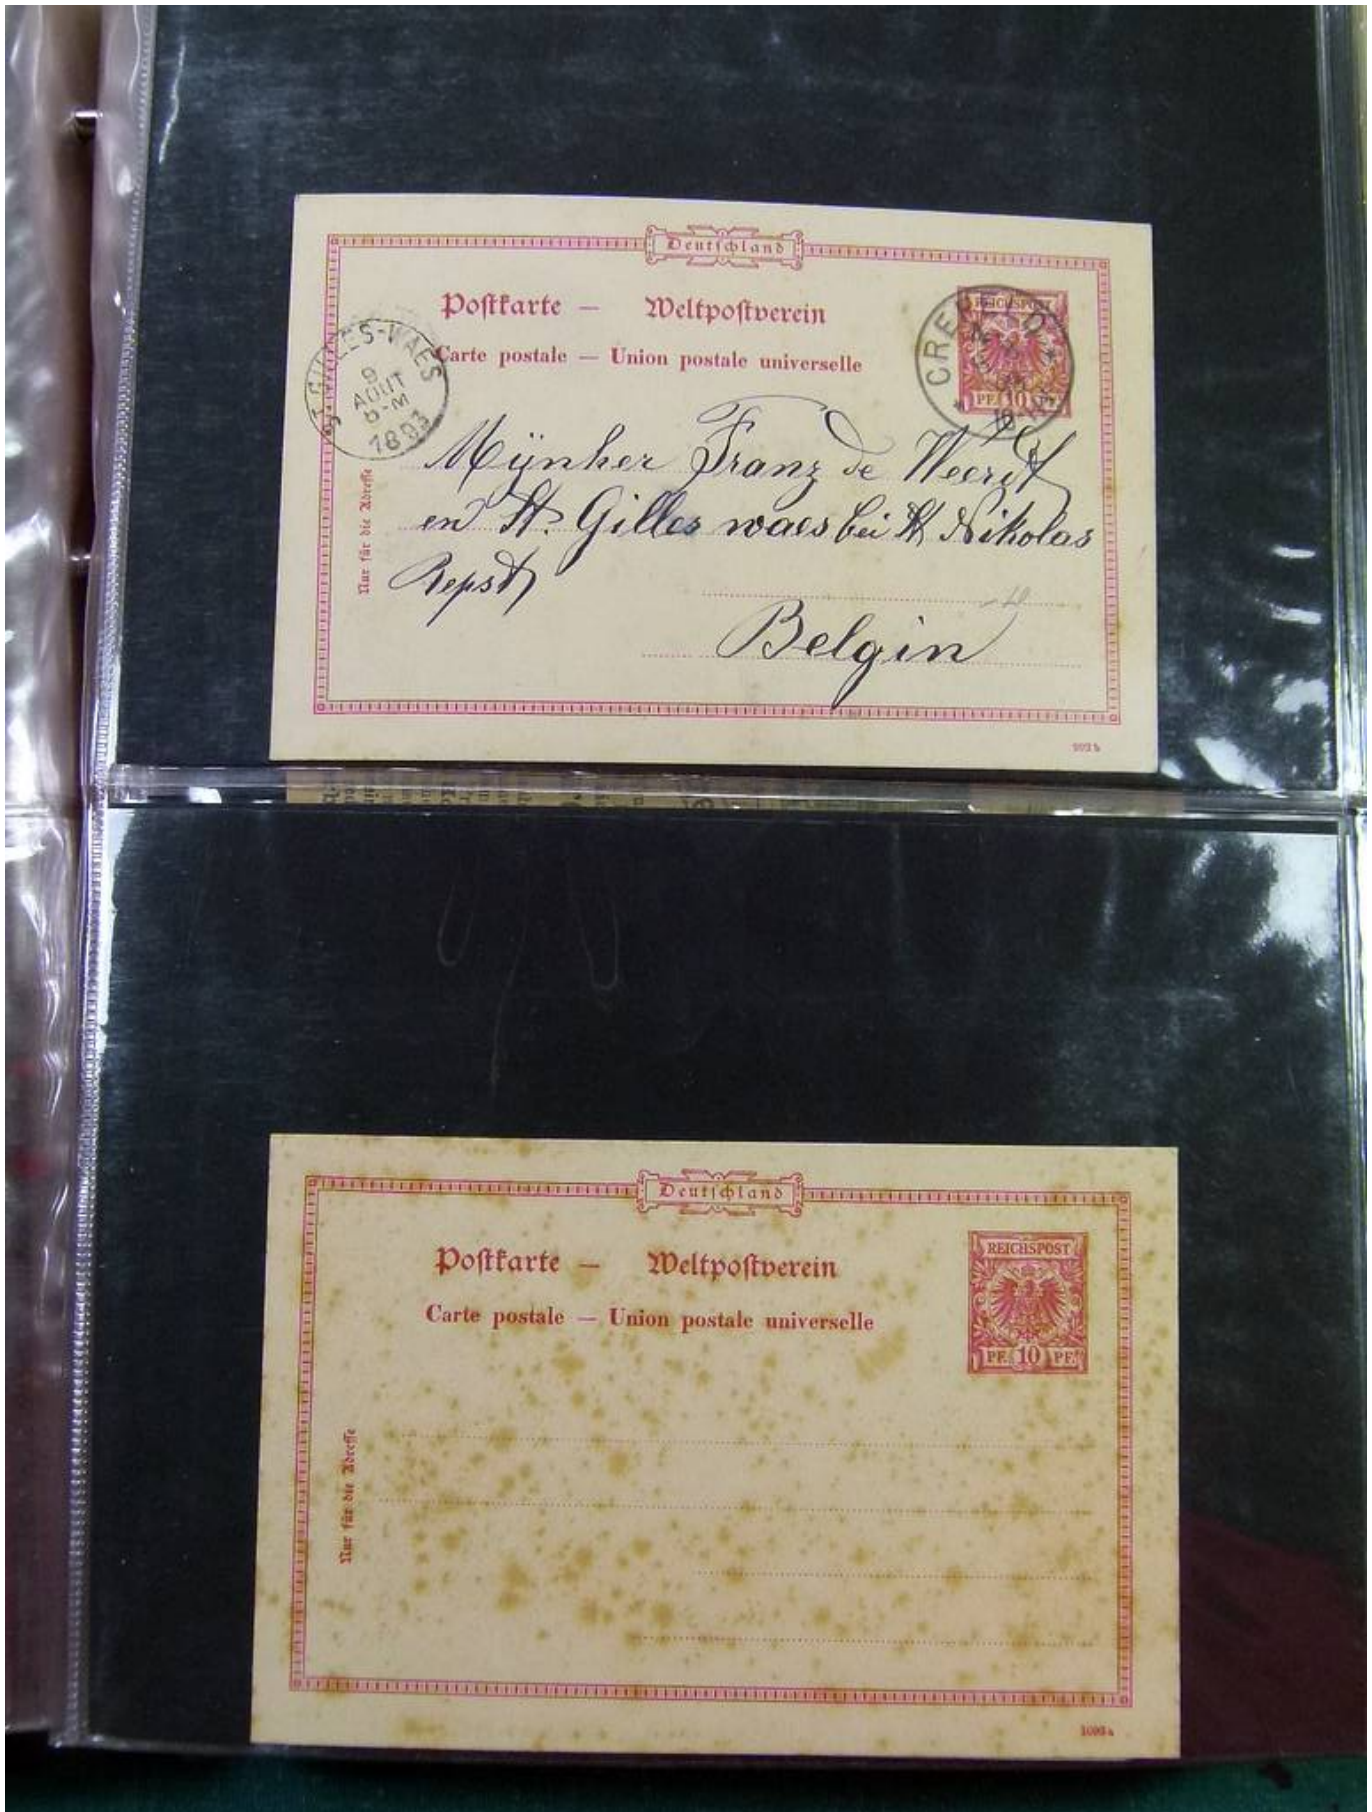 Deutschland
Postkarte — Weltpostverein
Carte postale — Union postale universelle
REICHSPOST
PF. 10
CREFELD
ST GILLES-WAES
9
AOUT
6-M
1893
Nur für die Adresse
Mÿnher Franz de Weerdt
en St. Gilles waes bei St Nikolas
Belgin
993 b
Deutschland
Postkarte — Weltpostverein
Carte postale — Union postale universelle
REICHSPOST
PF. 10 PF.
Nur für die Adresse